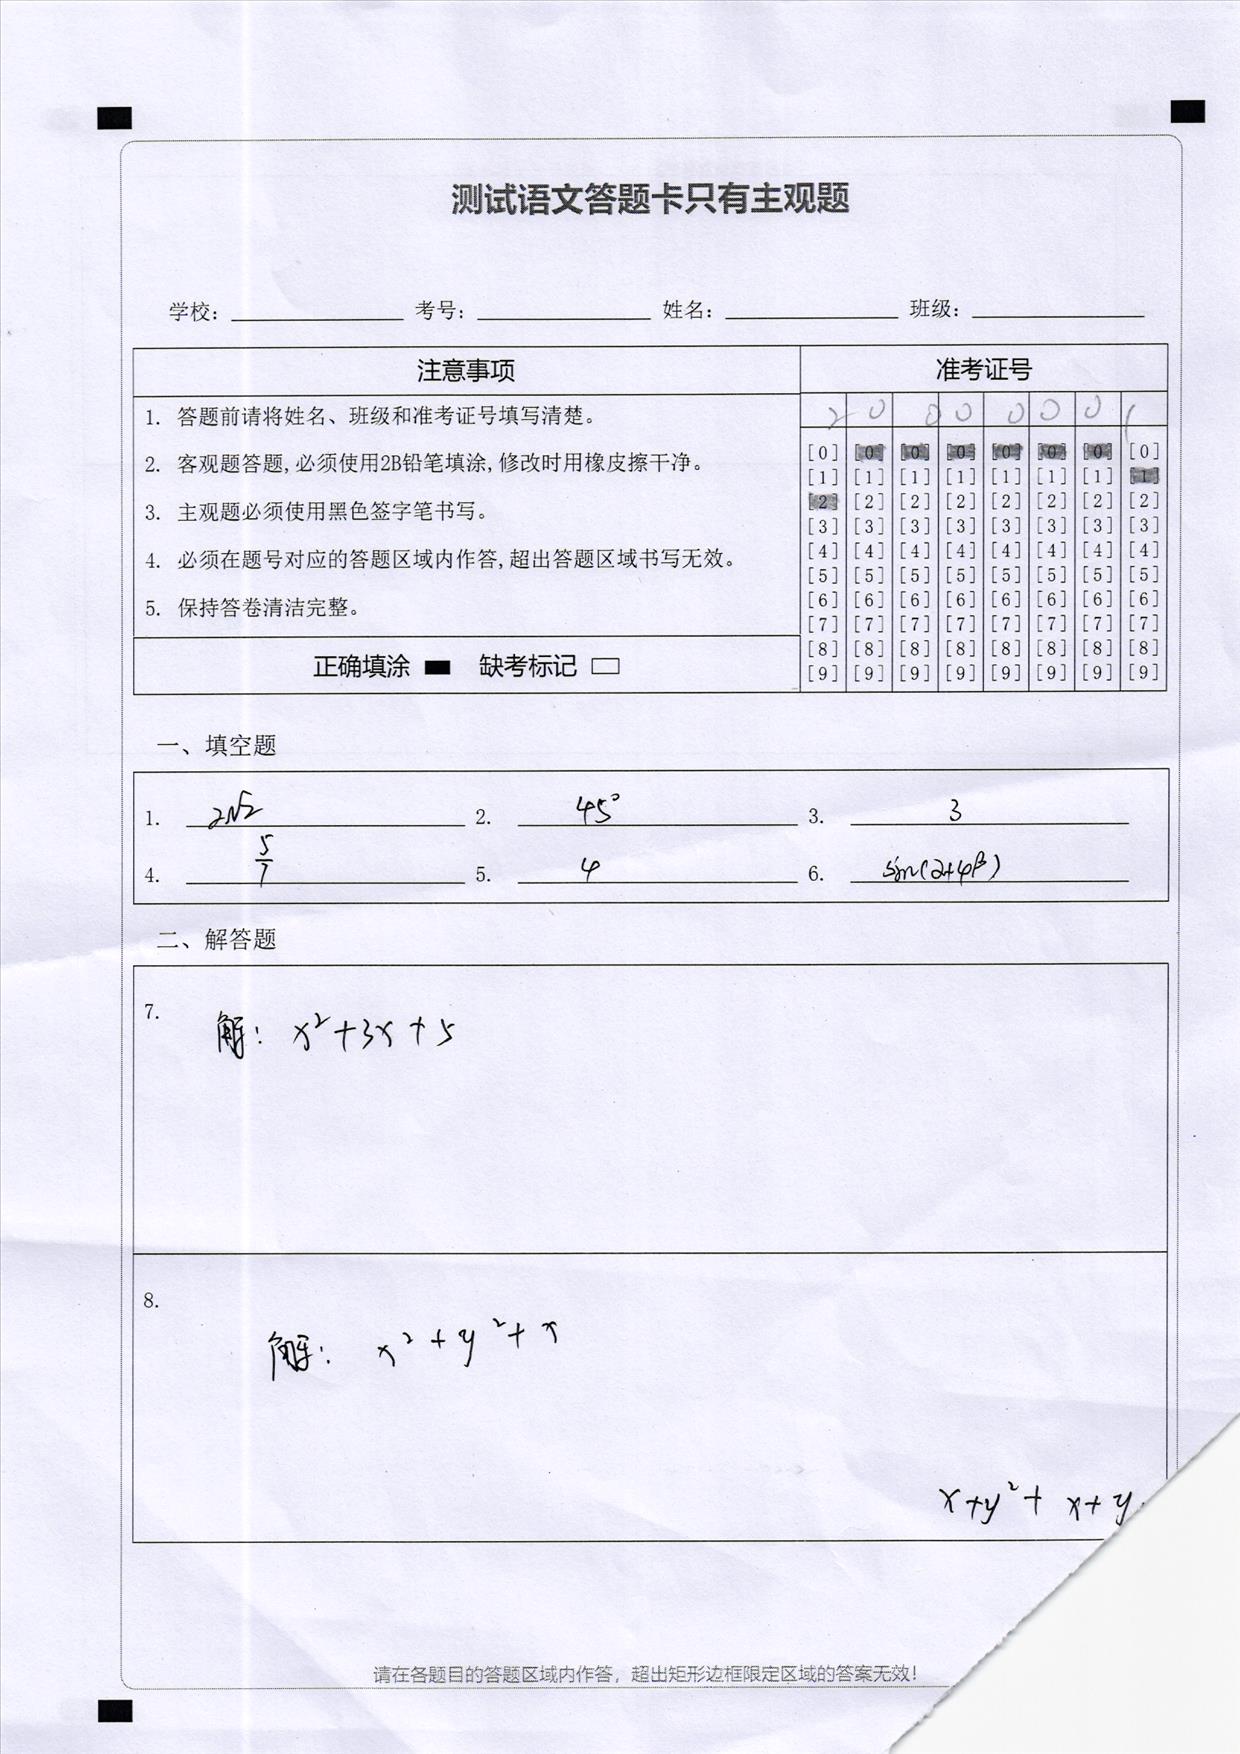 测试语文答题卡只有主观题
学校： 考号： 姓名： 班级：
注意事项 准考证号
2 0 0 0 0 0 0 1
1. 答题前请将姓名、班级和准考证号填写清楚。
2. 客观题答题,必须使用2B铅笔填涂,修改时用橡皮擦干净。
3. 主观题必须使用黑色签字笔书写。
4. 必须在题号对应的答题区域内作答,超出答题区域书写无效。
5. 保持答卷清洁完整。
正确填涂 缺考标记
[0] [0] [0] [0] [0] [0] [0] [0]
[1] [1] [1] [1] [1] [1] [1] [1]
[2] [2] [2] [2] [2] [2] [2] [2]
[3] [3] [3] [3] [3] [3] [3] [3]
[4] [4] [4] [4] [4] [4] [4] [4]
[5] [5] [5] [5] [5] [5] [5] [5]
[6] [6] [6] [6] [6] [6] [6] [6]
[7] [7] [7] [7] [7] [7] [7] [7]
[8] [8] [8] [8] [8] [8] [8] [8]
[9] [9] [9] [9] [9] [9] [9] [9]
一、填空题
1. 2√2 2. 45° 3. 3
4. 5/7 5. 4 6. sin(2+4β)
二、解答题
7.
解: x²+3x+5
8.
解: x²+y²+x
x+y²+ x+y
请在各题目的答题区域内作答，超出矩形边框限定区域的答案无效！